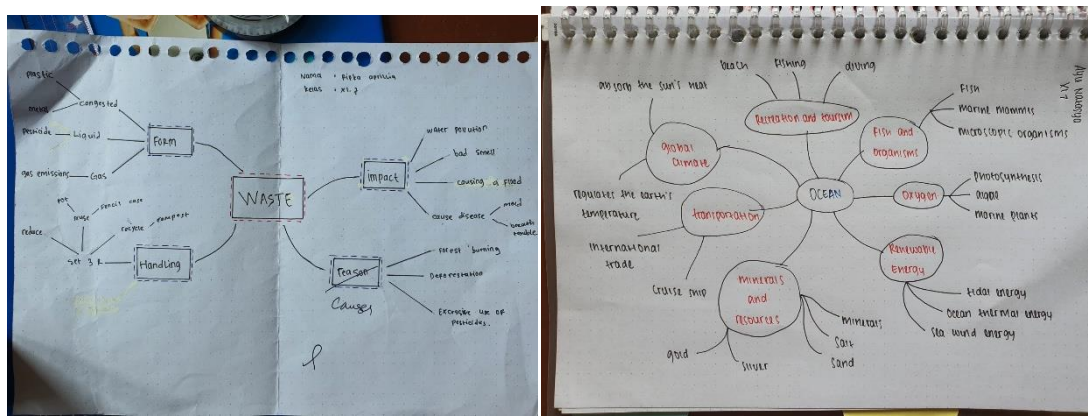 Nama : Rifka aprilia
kelas : XI.7
WASTE
Form
congested
plastic
metal
Liquid
pesticide
Gas
gas emissions
Handling
set 3 R
reduce
reuse
pot
pencil case
recycle
compost
Impact
water pollution
bad smell
causing a flood
cause disease
breath
trouble
reason
Causes
Forest burning
Deforestation
Excessive use of
pesticides.
Ayu
XI.7
OCEAN
Recreation and tourism
beach
fishing
diving
Fish and
organisms
Fish
marine mammls
microscopic organisms
oxygen
photosynthesis
algae
marine plants
Renewable
energy
tidal energy
ocean thermal energy
sea wind energy
minerals
and
resources
minerals
salt
sand
silver
gold
transportation
International
trade
cruise ship
global
climate
absorb the sun's heat
regulates the earth's
temperature